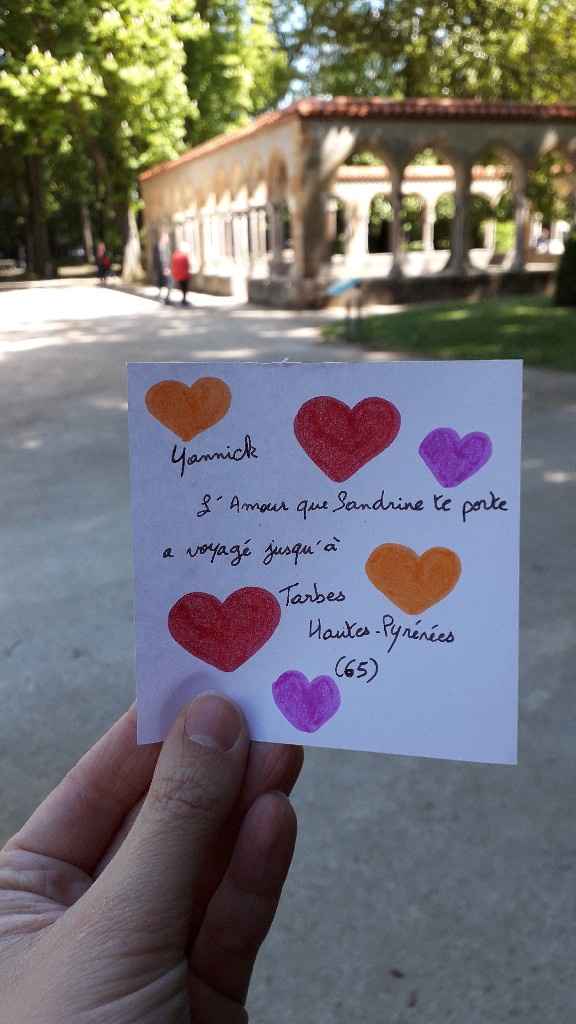 Yannick
L'Amour que Sandrine te porte
a voyagé jusqu'à
Tarbes
Hautes-Pyrénées
(65)